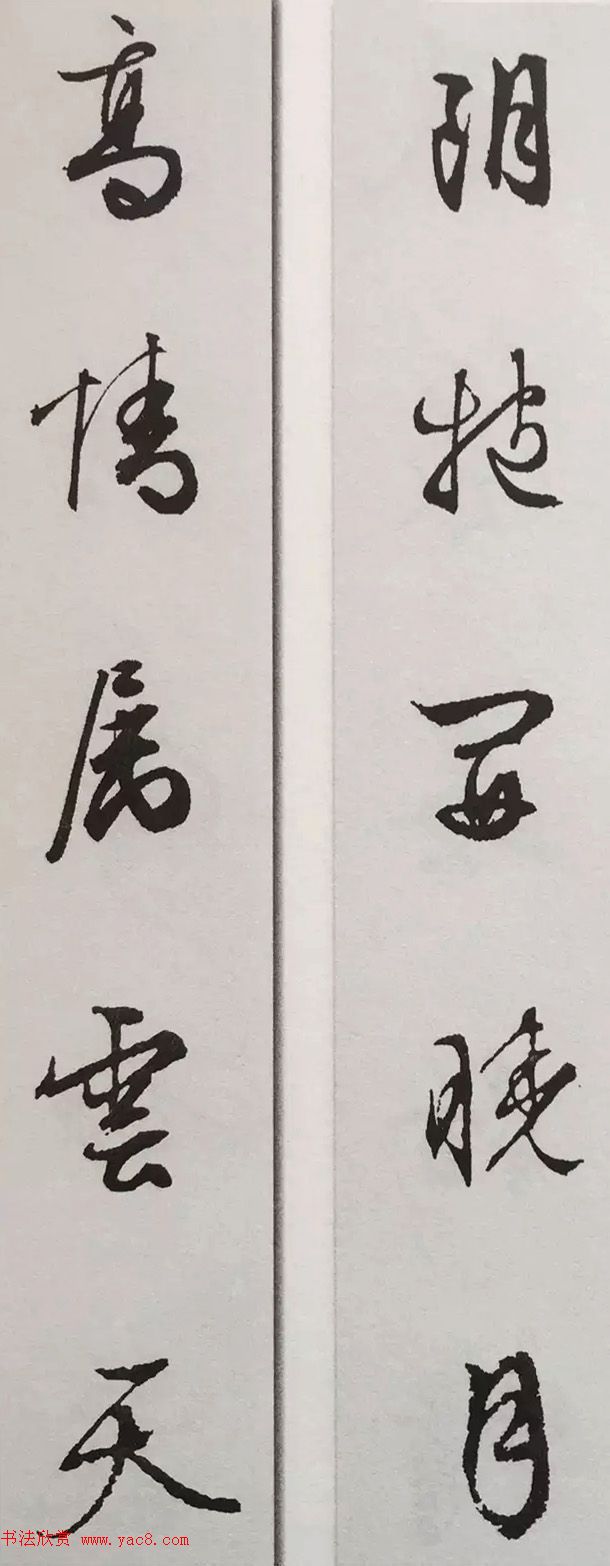 朗抱開曉月
高情属雲天
书法欣赏 www.yac8.com